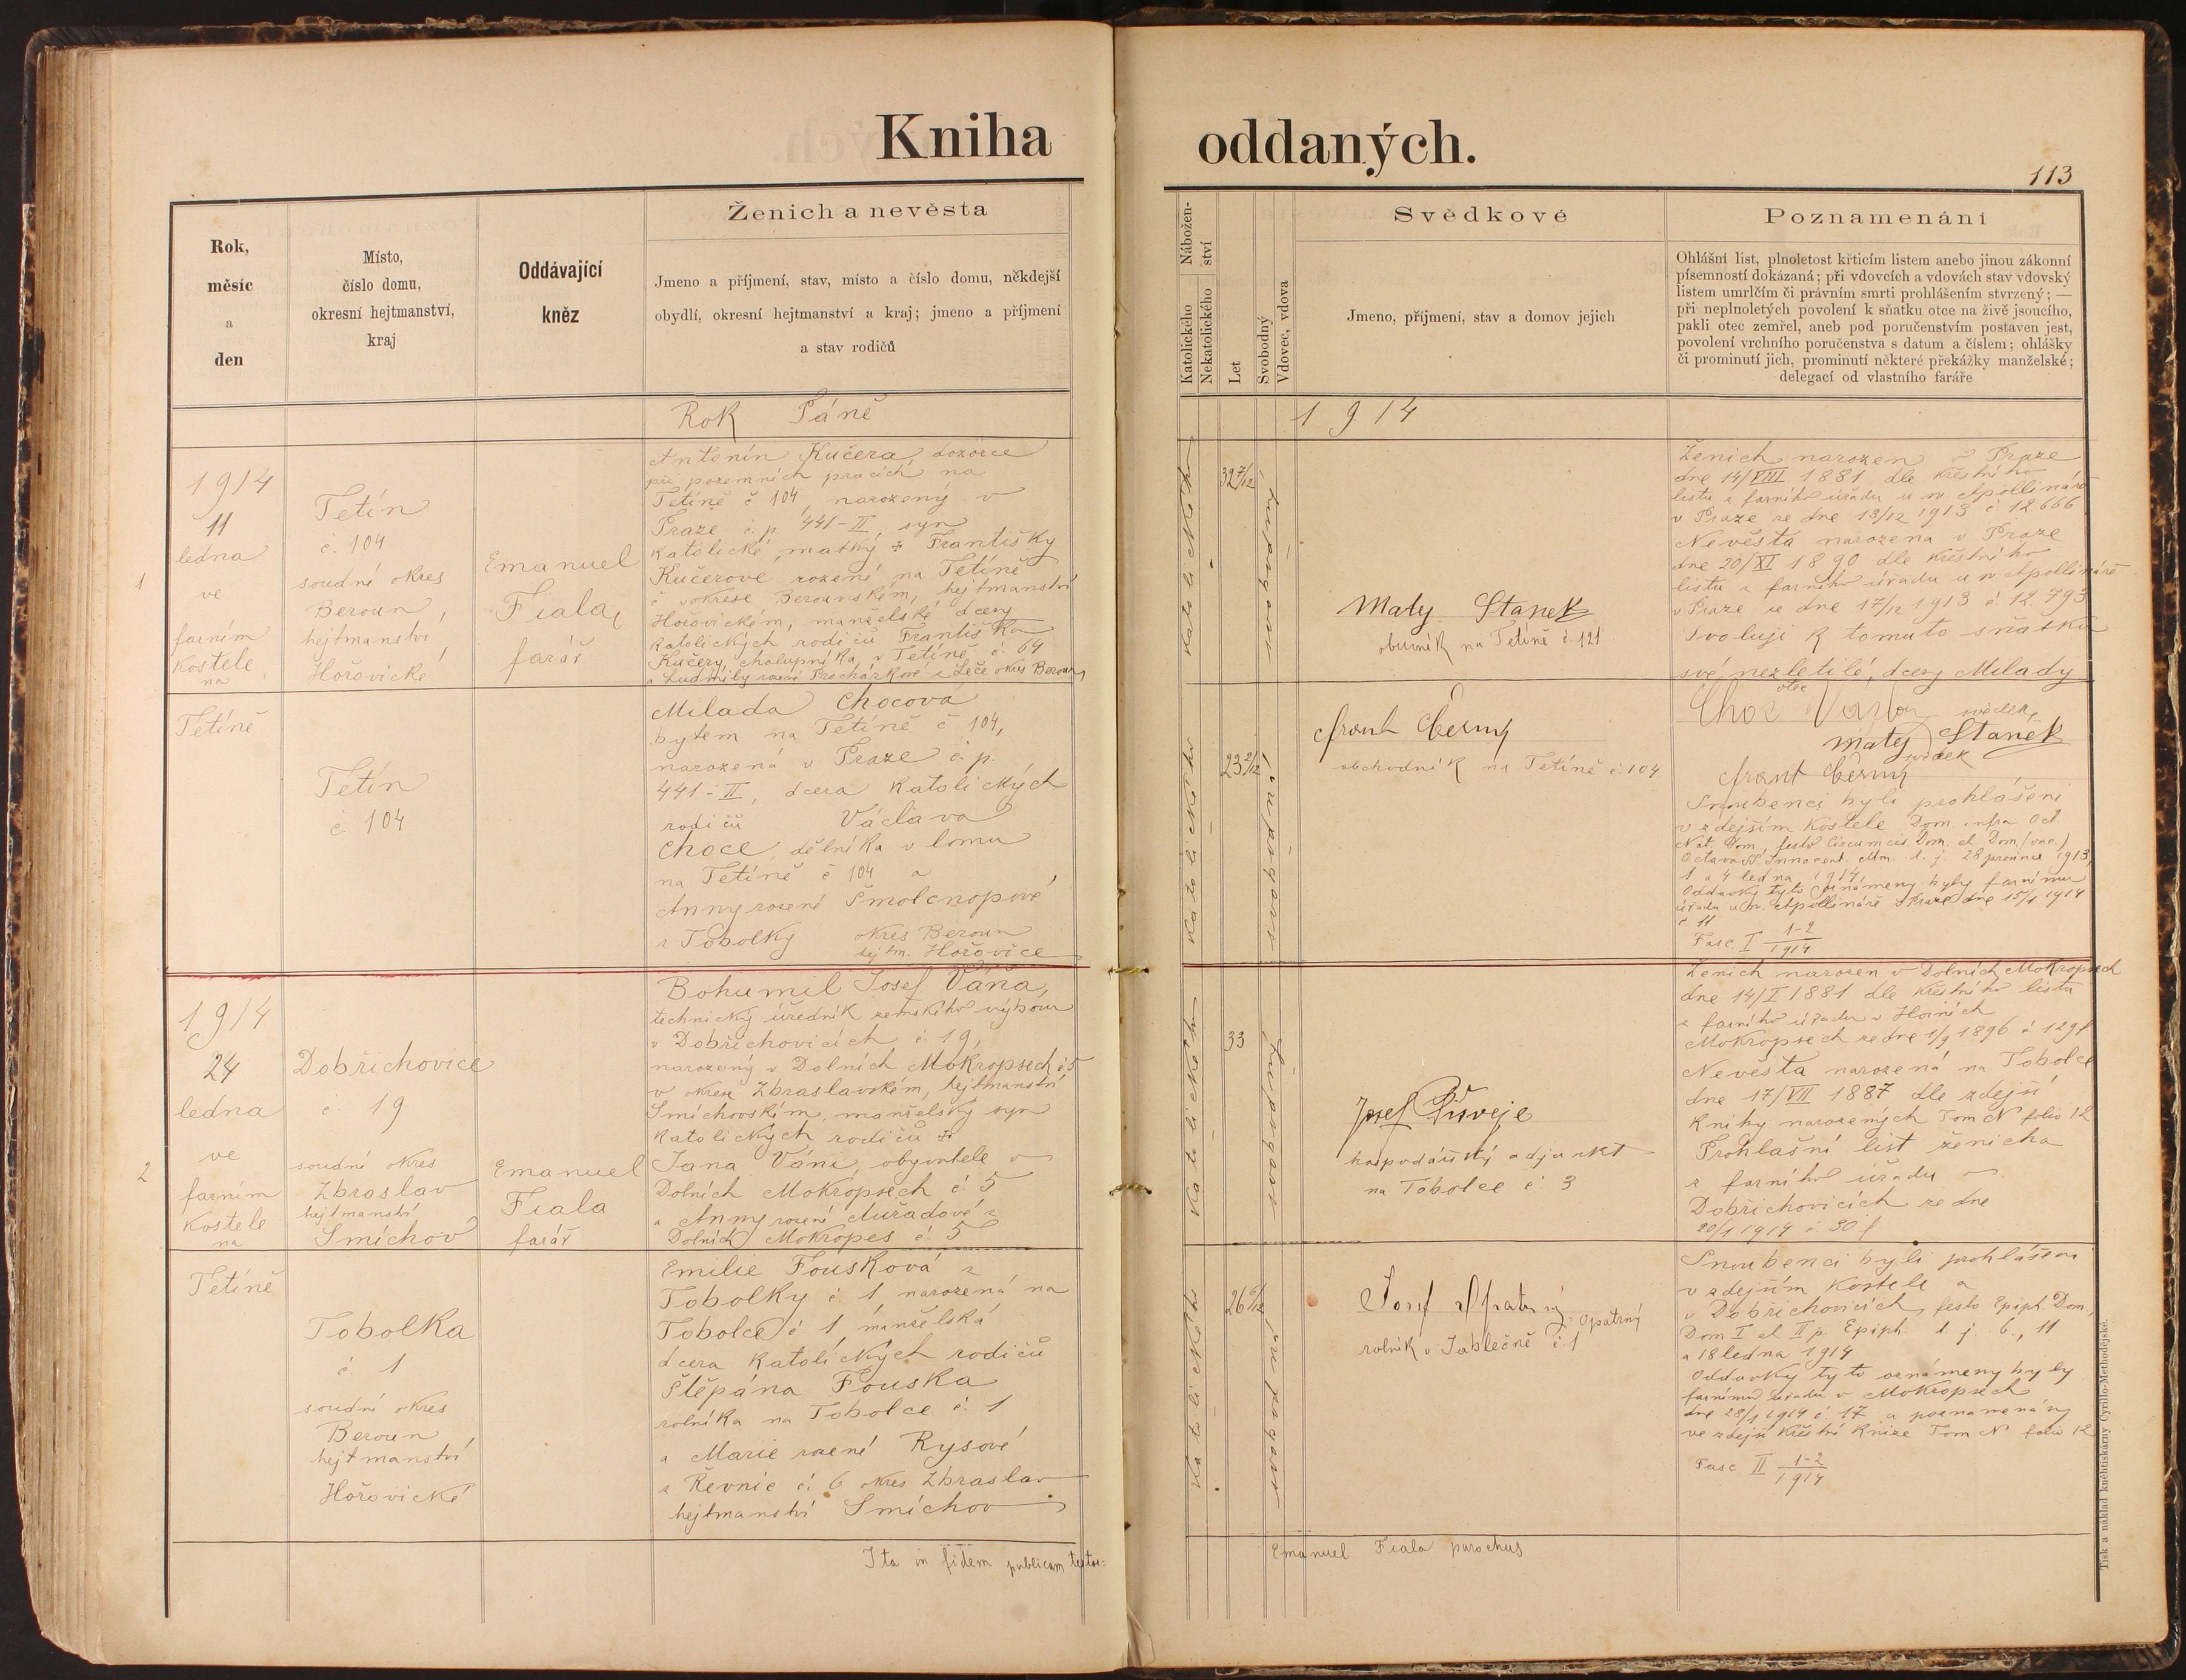 Kniha oddaných.
113
Rok,
měsíc
a
den
Místo,
číslo domu,
okresní hejtmanství,
kraj
Oddávající
kněz
Ženich a nevěsta
Jmeno a příjmení, stav, místo a číslo domu, někdejší
obydlí, okresní hejtmanství a kraj; jmeno a příjmení
a stav rodičů
Nábožen-
ství
Katolického
Nekatolického
Let
Svobodný
Vdovec, vdova
Svědkové
Jmeno, příjmení, stav a domov jejich
Poznamenání
Ohlášní list, plnoletost křticím listem anebo jinou zákonní
písemností dokázaná; při vdovcích a vdovách stav vdovský
listem umrlčím či právním smrti prohlášením stvrzený; —
při neplnoletých povolení k sňatku otce na živě jsoucího,
pakli otec zemřel, aneb pod poručenstvím postaven jest,
povolení vrchního poručenstva s datum a číslem; ohlášky
či prominutí jich, prominutí některé překážky manželské;
delegací od vlastního faráře
Rok Páně 1914
1
1914
11
ledna
ve
farním
Kostele
na
Tetíně
Tetín
č. 104
soudní okres
Beroun,
hejtmanství
Hořovické
Emanuel
Fiala,
farář
Antonín Kučera, dozorce
při pozemních pracích na
Tetíně č 104, narozený v
Praze č. p. 441-II, syn
katolické matky Františky
Kučerové rozené na Tetíně
v okrese Berounském, hejtmanství
Hořovickém, manželské dcery
katolických rodičů Františka
Kučery, chalupníka v Tetíně č. 64
a Ludmily rozené Procházkové z Leče okres Beroun
katolického
32 7/12
svobodný
Matěj Staněk
obuvník na Tetíně č. 121
Ženich narozen v Praze
dne 14/VIII 1881 dle křestního
listu z farního úřadu u sv Apollináře
v Praze ze dne 13/12 1913 č. 12.666
Nevěsta narozena v Praze
dne 20/XI 1890 dle křestního
listu z farního úřadu u sv. Apollináře
v Praze ze dne 17/12 1913 č. 12.793
Svoluji k tomuto sňatku
své nezletilé dcery Milady
otec
svědek
Matěj Staněk
svědek
Frant Černý
Tetín
č. 104
Milada Chocová
bytem na Tetíně č 104,
narozená v Praze č. p.
441-II, dcera katolických
rodičů Václava
Choce, dělníka v lomu
na Tetíně č 104 a
Anny rozené Šmolcnopové
z Tobolky okres Beroun
hejtm. Hořovice
katolického
23 2/12
Frant Černý
obchodník na Tetíně č. 104
Snoubenci byli prohlášeni
v zdejším kostele Dom. infra Oct
Nat. Dom., festo Circumcis. Dom. et Dom. (vac.)
Octava SS Innocent. Mm. t. j. 28 prosince 1913,
1 a 4 ledna 1914.
Oddavky tyto oznámeny byly farnímu
úřadu u sv. Apollináře v Praze dne 15/1 1914
č. 11
Fasc I 1-2/1914
2
1914
24
ledna
ve
farním
Kostele
na
Tetíně
Dobřichovice
č. 19
soudní okres
Zbraslav
hejtmanství
Smíchov
Emanuel
Fiala
farář
Bohumil Josef Váňa,
technický úředník zemského výboru
v Dobřichovicích č. 19,
narozený v Dolních Mokropsech č. 5
v okrese Zbraslavském, hejtmanství
Smíchovském, manželský syn
katolických rodičů
Jana Váni, obyvatele v
Dolních Mokropsech č. 5
a Anny rozené
Dolních Mokropes č. 5
katolického
33
svobodný
Josef
hospodářský adjunkt
na Tobolce č. 3
Ženich narozen v Dolních Mokropsech
dne 14/I 1881 dle křestního listu
z farního úřadu v Horních
Mokropsech ze dne 1/9 1896 č 129
Nevěsta narozená na Tobolce
dne 17/VII 1887 dle zdejší
knihy narozených Tom N folio 12
Prohlašní list ženicha
z farního úřadu v
Dobřichovicích ze dne
20/1 1914 č. 30
Tobolka
č. 1
soudní okres
Beroun
hejtmanství
Hořovické
Emilie Fousková z
Tobolky č. 1 narozená na
Tobolce č 1, manželská
dcera katolických rodičů
Štěpána Fouska
rolníka na Tobolce č. 1
a Marie rozené Rysové
z Řevnic č. 6 okres Zbraslav
hejtmanství Smíchov
katolického
26 6/12
Josef Opatrný
Opatrný
rolník v Jablečně č. 1
Snoubenci byli prohlášeni
v zdejším kostele a
v Dobřichovicích, festo Epiph. Dom,
Dom I et II p. Epiph. t. j. 6., 11
a 18 ledna 1914
Oddavky tyto oznámeny byly
farnímu úřadu v Mokropsech
dne 28/1 1914 č 17 a poznamenány
ve zdejší křestní knize Tom N folio 12
Fasc II 1-2/1914
Ita in fidem publicam testor:
Emanuel Fiala parochus
Tisk a náklad knihtiskárny Cyrillo-Methodějské.